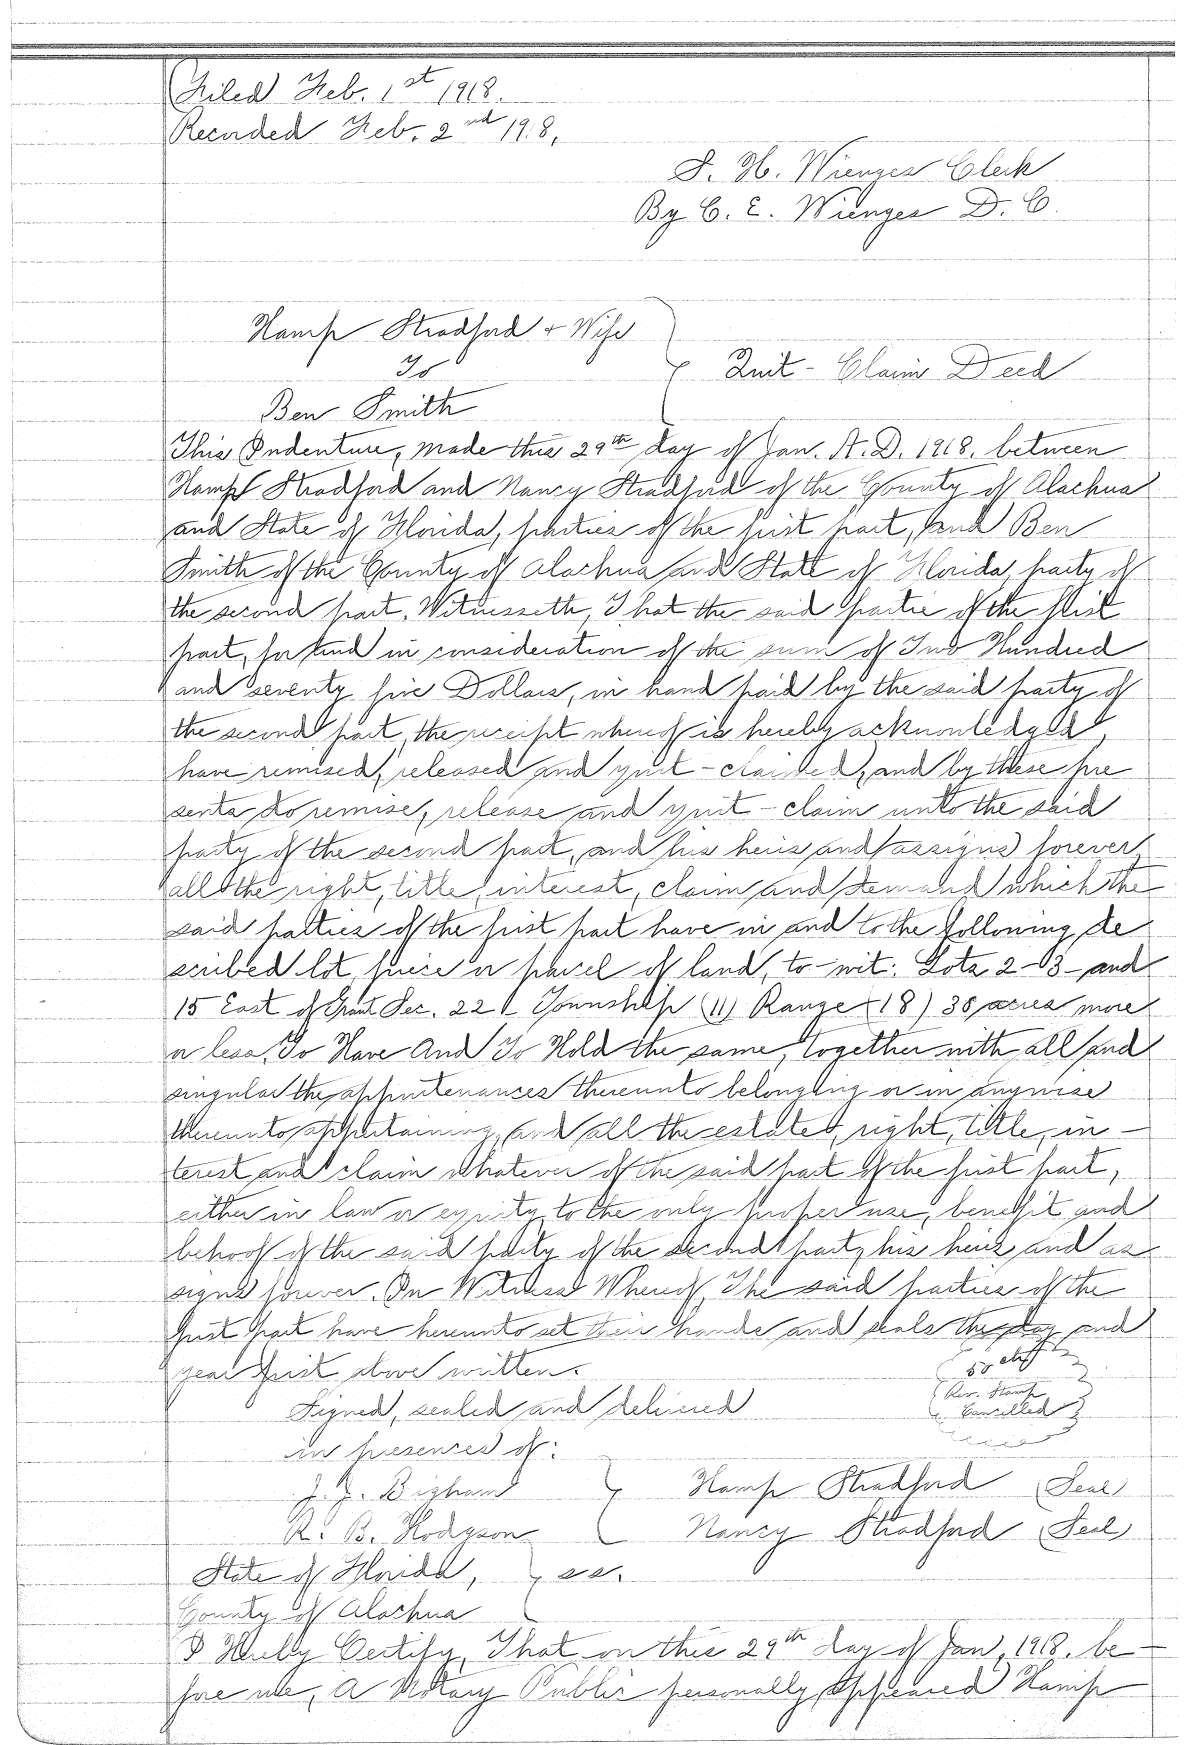 Filed Feb. 1st 1918.
Recorded Feb. 2nd 1918.
S. H. Wienges Clerk
By C. E. Wienges D. C.
Hamp Stradford + Wife
To
Quit - Claim Deed
Ben Smith
This Indenture, made this 29th day of Jan. A. D. 1918. between
Hamp Stradford and Nancy Stradford of the County of Alachua
and State of Florida, parties of the first part, and Ben
Smith of the County of Alachua and State of Florida, party of
the second part. Witnesseth, That the said partie of the first
part, for and in consideration of the sum of Two Hundred
and seventy five Dollars, in hand paid by the said party of
the second part, the receipt whereof is hereby acknowledged,
have remised, released and quit-claimed, and by these pre
sents do remise, release and quit-claim unto the said
party of the second part, and his heirs and assigns forever
all the right, title, interest, claim and demand which the
said parties of the first part have in and to the following de
scribed lot, piece or parcel of land, to-wit: Lots 2-3- and
15 East of Grant Sec. 22 Township (11) Range (18) 36 acres more
or less. To Have And To Hold the same, together with all and
singular the appurtenances thereunto belonging or in anywise
thereunto appertaining, and all the estate, right, title, in-
terest and claim whatever of the said part of the first part,
either in law or equity, to the only proper use, benefit and
behoof of the said party of the second part, his heirs and as
signs forever. In Witness Whereof, The said parties of the
first part have hereunto set their hands and seals the day and
year first above written.
50 cts
Rev. Stamp
Cancelled
Signed, sealed and delivered
in presences of:
J. J. Bigham
Hamp Stradford (Seal)
R. B. Hodgson
Nancy Stradford (Seal)
State of Florida, ss.
County of Alachua
I Hereby Certify, That on this 29th day of Jan, 1918. be-
fore me, a Notary Public personally appeared Hamp